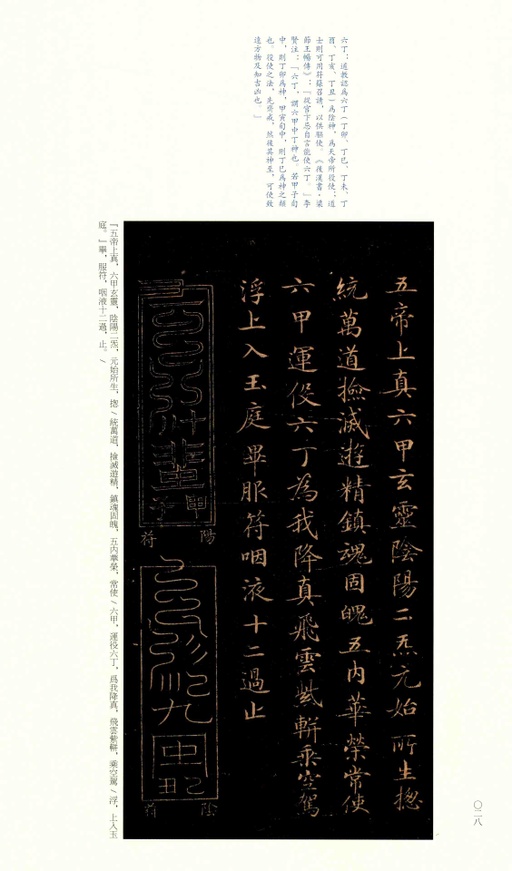 六丁：道教認為六丁（丁卯、丁巳、丁未、丁
酉、丁亥、丁丑）為陰神，為天帝所役使；道
士則可用符籙召請，以供驅使。《後漢書·梁
節王暢傳》：「從官卞忌自言能使六丁。」李
賢注：「六丁，謂六甲中丁神也。若甲子旬
中，則丁卯為神，甲寅旬中，則丁巳為神之類
也。役使之法，先齋戒，然後其神至，可使致
遠方物及知吉凶也。」
五帝上真六甲玄靈陰陽二炁元始所生揔
統萬道撿滅遊精鎮魂固魄五內華榮常使
六甲運役六丁為我降真飛雲紫軿乘空駕
浮上入玉庭畢服符咽液十二過止
陽
符
陰
符
「五帝上真，六甲玄靈，陰陽二炁，元始所生，揔／統萬道，撿滅遊精，鎮魂固魄，五內華榮，常使／六甲，運役六丁，為我降真，飛雲紫軿，乘空駕／浮，上入玉
庭。」畢，服符，咽液十二過，止。／
〇二八